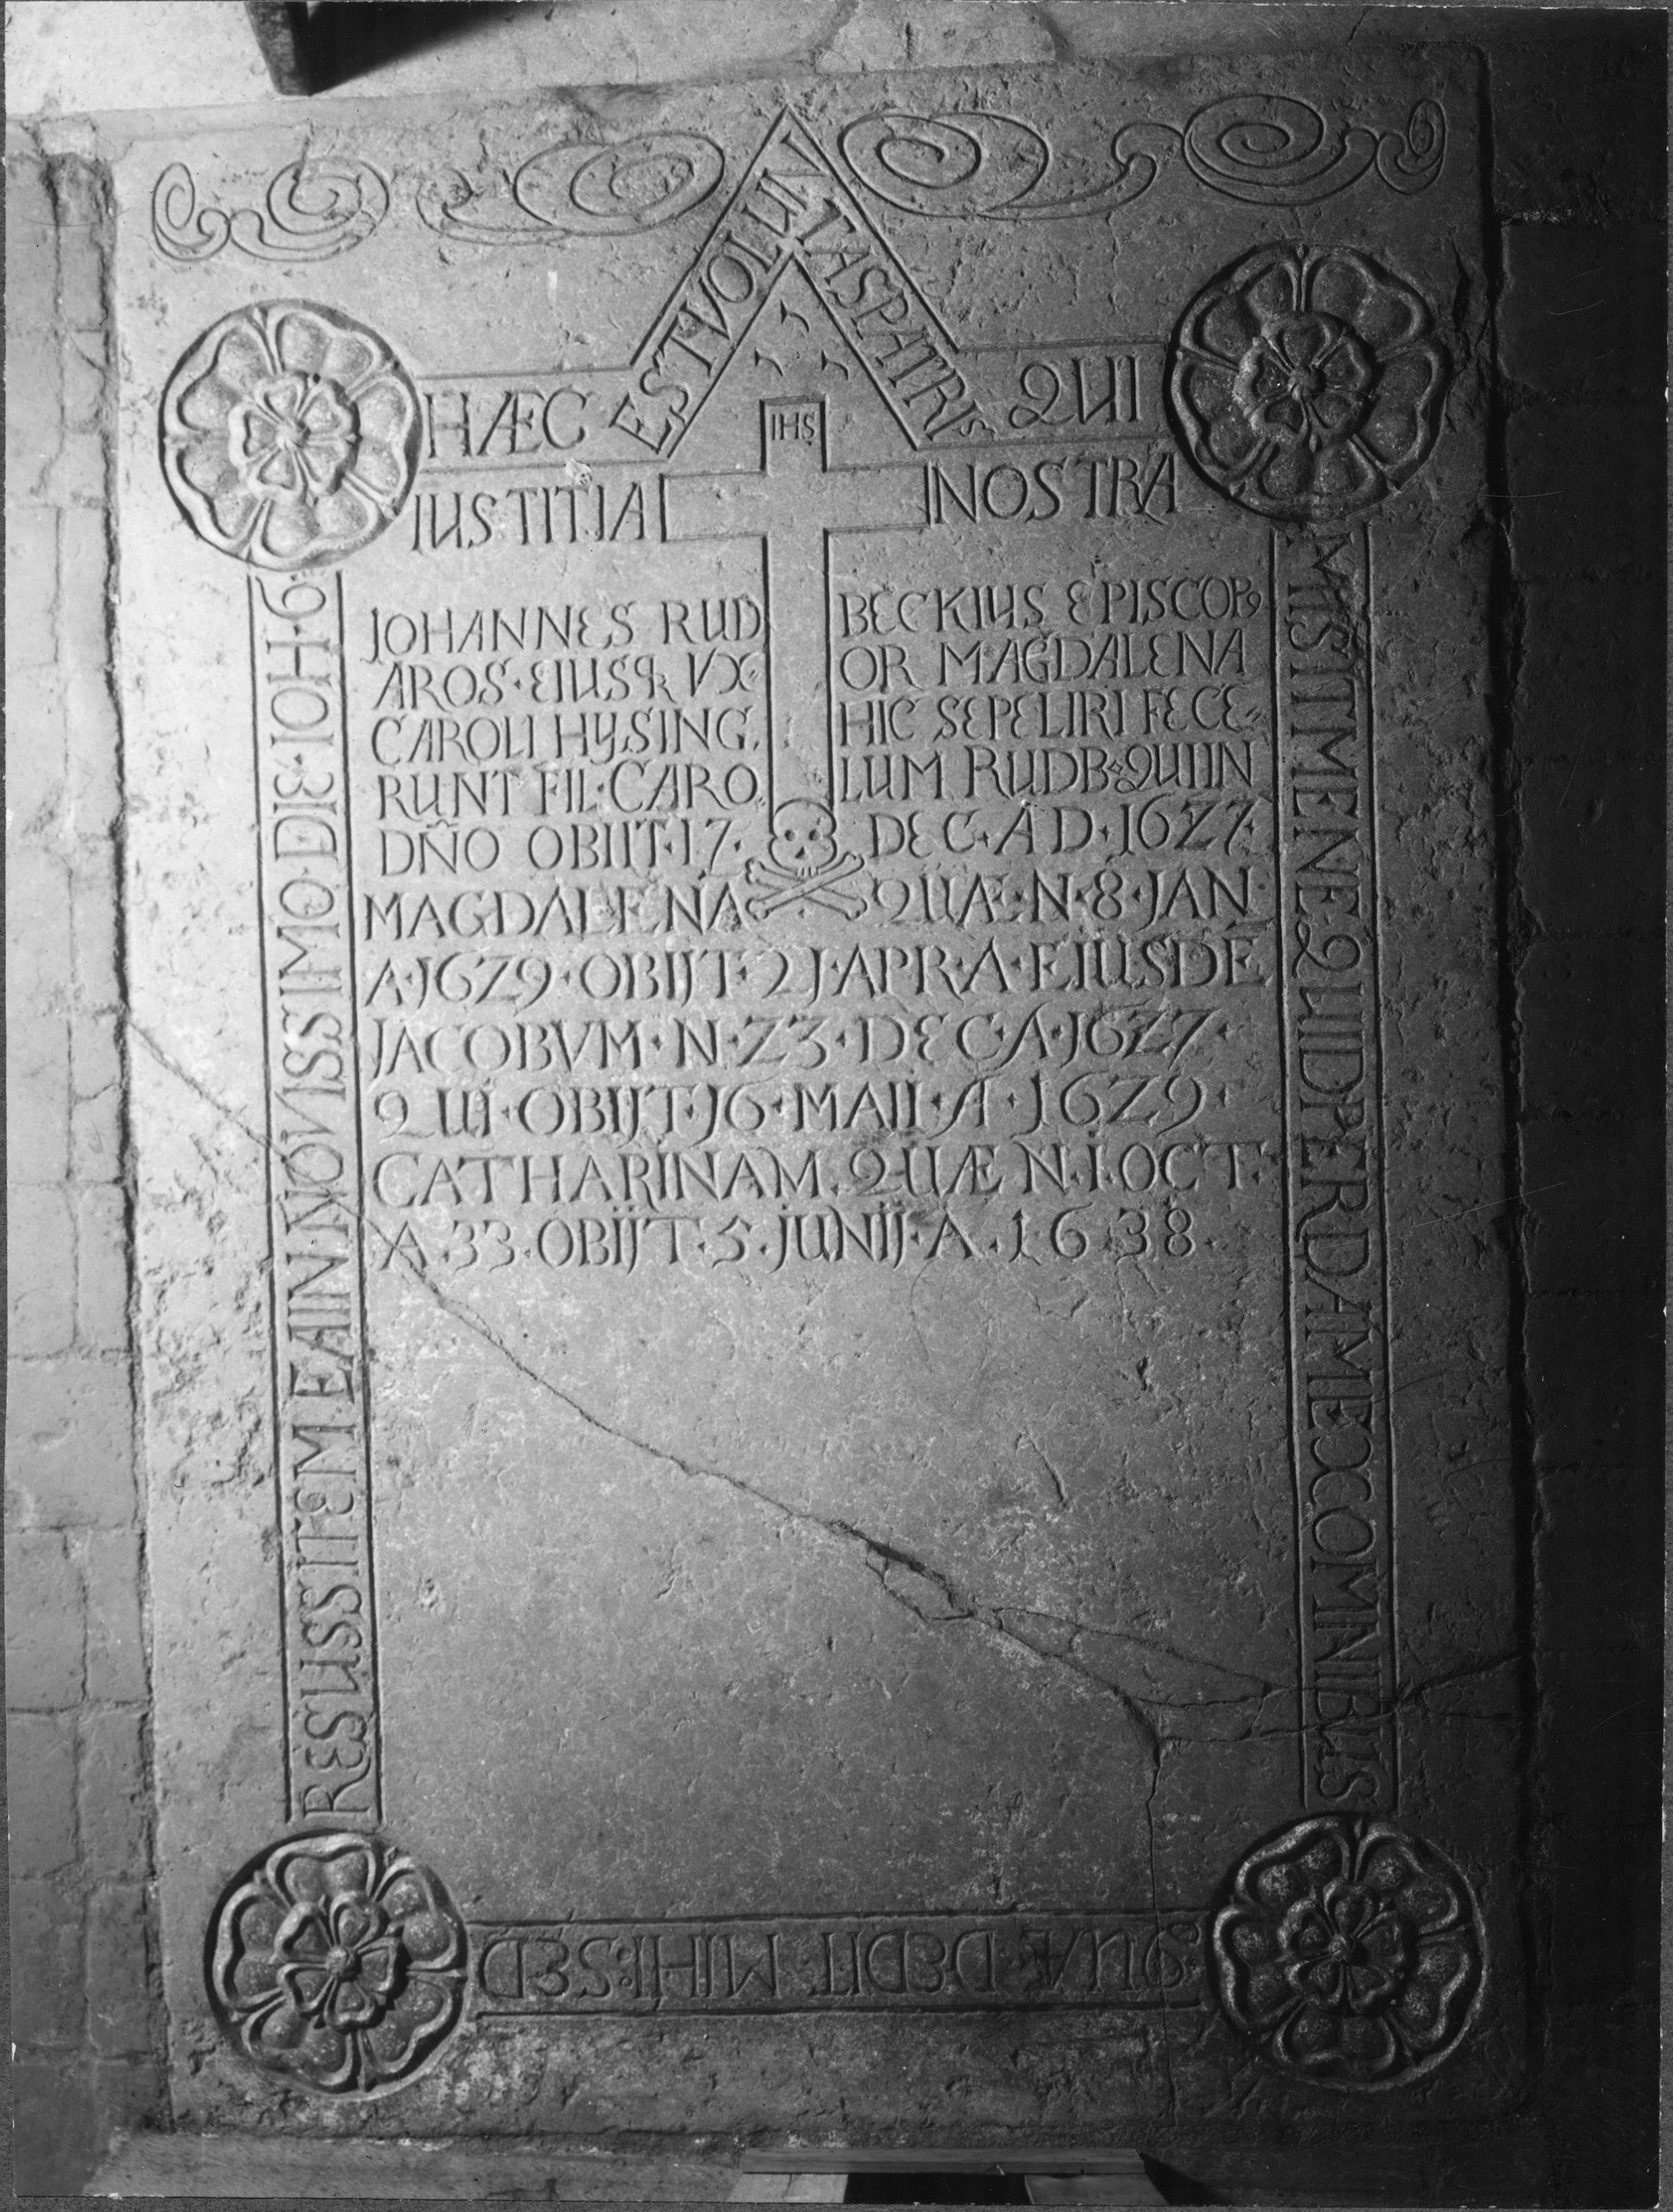 HÆC EST VOLUN TAS PATRIS QUI
MISIT ME NE QUID PERDAM EX OMNIBUS
QUÆ DEDIT MIHI: SED
RESUSSITEM EA IN NOVISSIMO DIE · IOH · 6 ·
IHS
IUSTITIA NOSTRA
JOHANNES RUD BECKIUS EPISCOP9
AROS · EIUSQ VX OR MAGDALENA
CAROLI HYSING. HIC SEPELIRI FECE
RUNT FIL · CARO LUM RUDB · QUI IN
DÑO OBIIT · 17 · DEC · A D · 1627 ·
MAGDALENA QUÆ · N · 8 · JAN ·
A · J6Z9 · OBIJT · 2J · APR · A · EIUSDE
JACOBVM · N · Z3 · DEC · A · J6Z7 ·
QUI · OBIJT · J6 · MAII · A · 16Z9 ·
CATHARINAM. QUÆ N · I · OCT ·
A · 33 · OBIJT · 5 · JUNIJ · A · 1638 ·